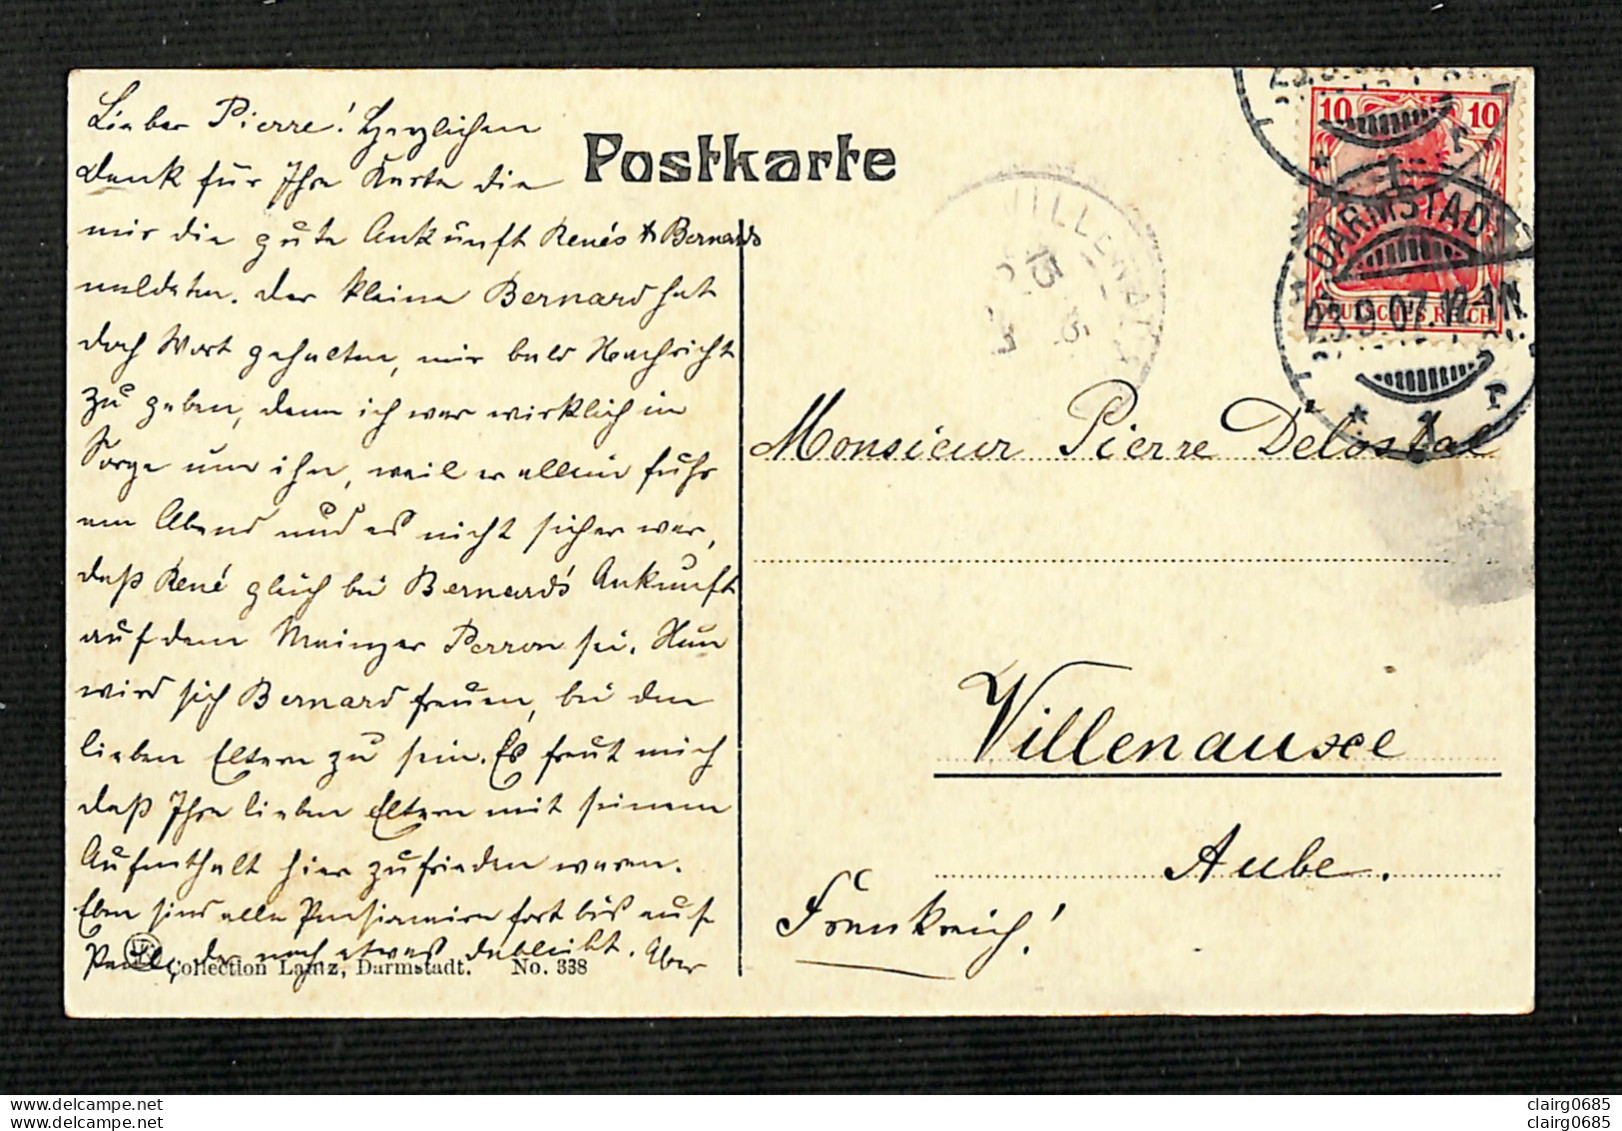 Lieber Pierre! Herzlichen
Dank für Ihre Karte die
mir die gute Ankunft Renés & Bernards
meldeten. Der kleine Bernard hat
doch Wort gehalten, mir bald Nachricht
zu geben, denn ich war wirklich in
Sorge um ihn, weil er allein fuhr
am Abend und es nicht sicher war,
daß René gleich bei Bernards Ankunft
auf dem Mainzer Perron sei. Nun
wird sich Bernard freuen, bei den
lieben Eltern zu sein. Es freut mich
daß Ihre lieben Eltern mit seinem
Aufenthalt hier zufrieden waren.
Eben sind alle Pensionaire fort bis auf
der noch etwas dableibt. Aber
Collection Lautz, Darmstadt. No. 338
Postkarte
VILLENAUXE
10 10
DEUTSCHES REICH
DARMSTADT
23.9.07.
Monsieur Pierre Delostal
Villenauxe
Aube.
Frankreich!
clairg0685
clairg0685
clairg0685
clairg0685